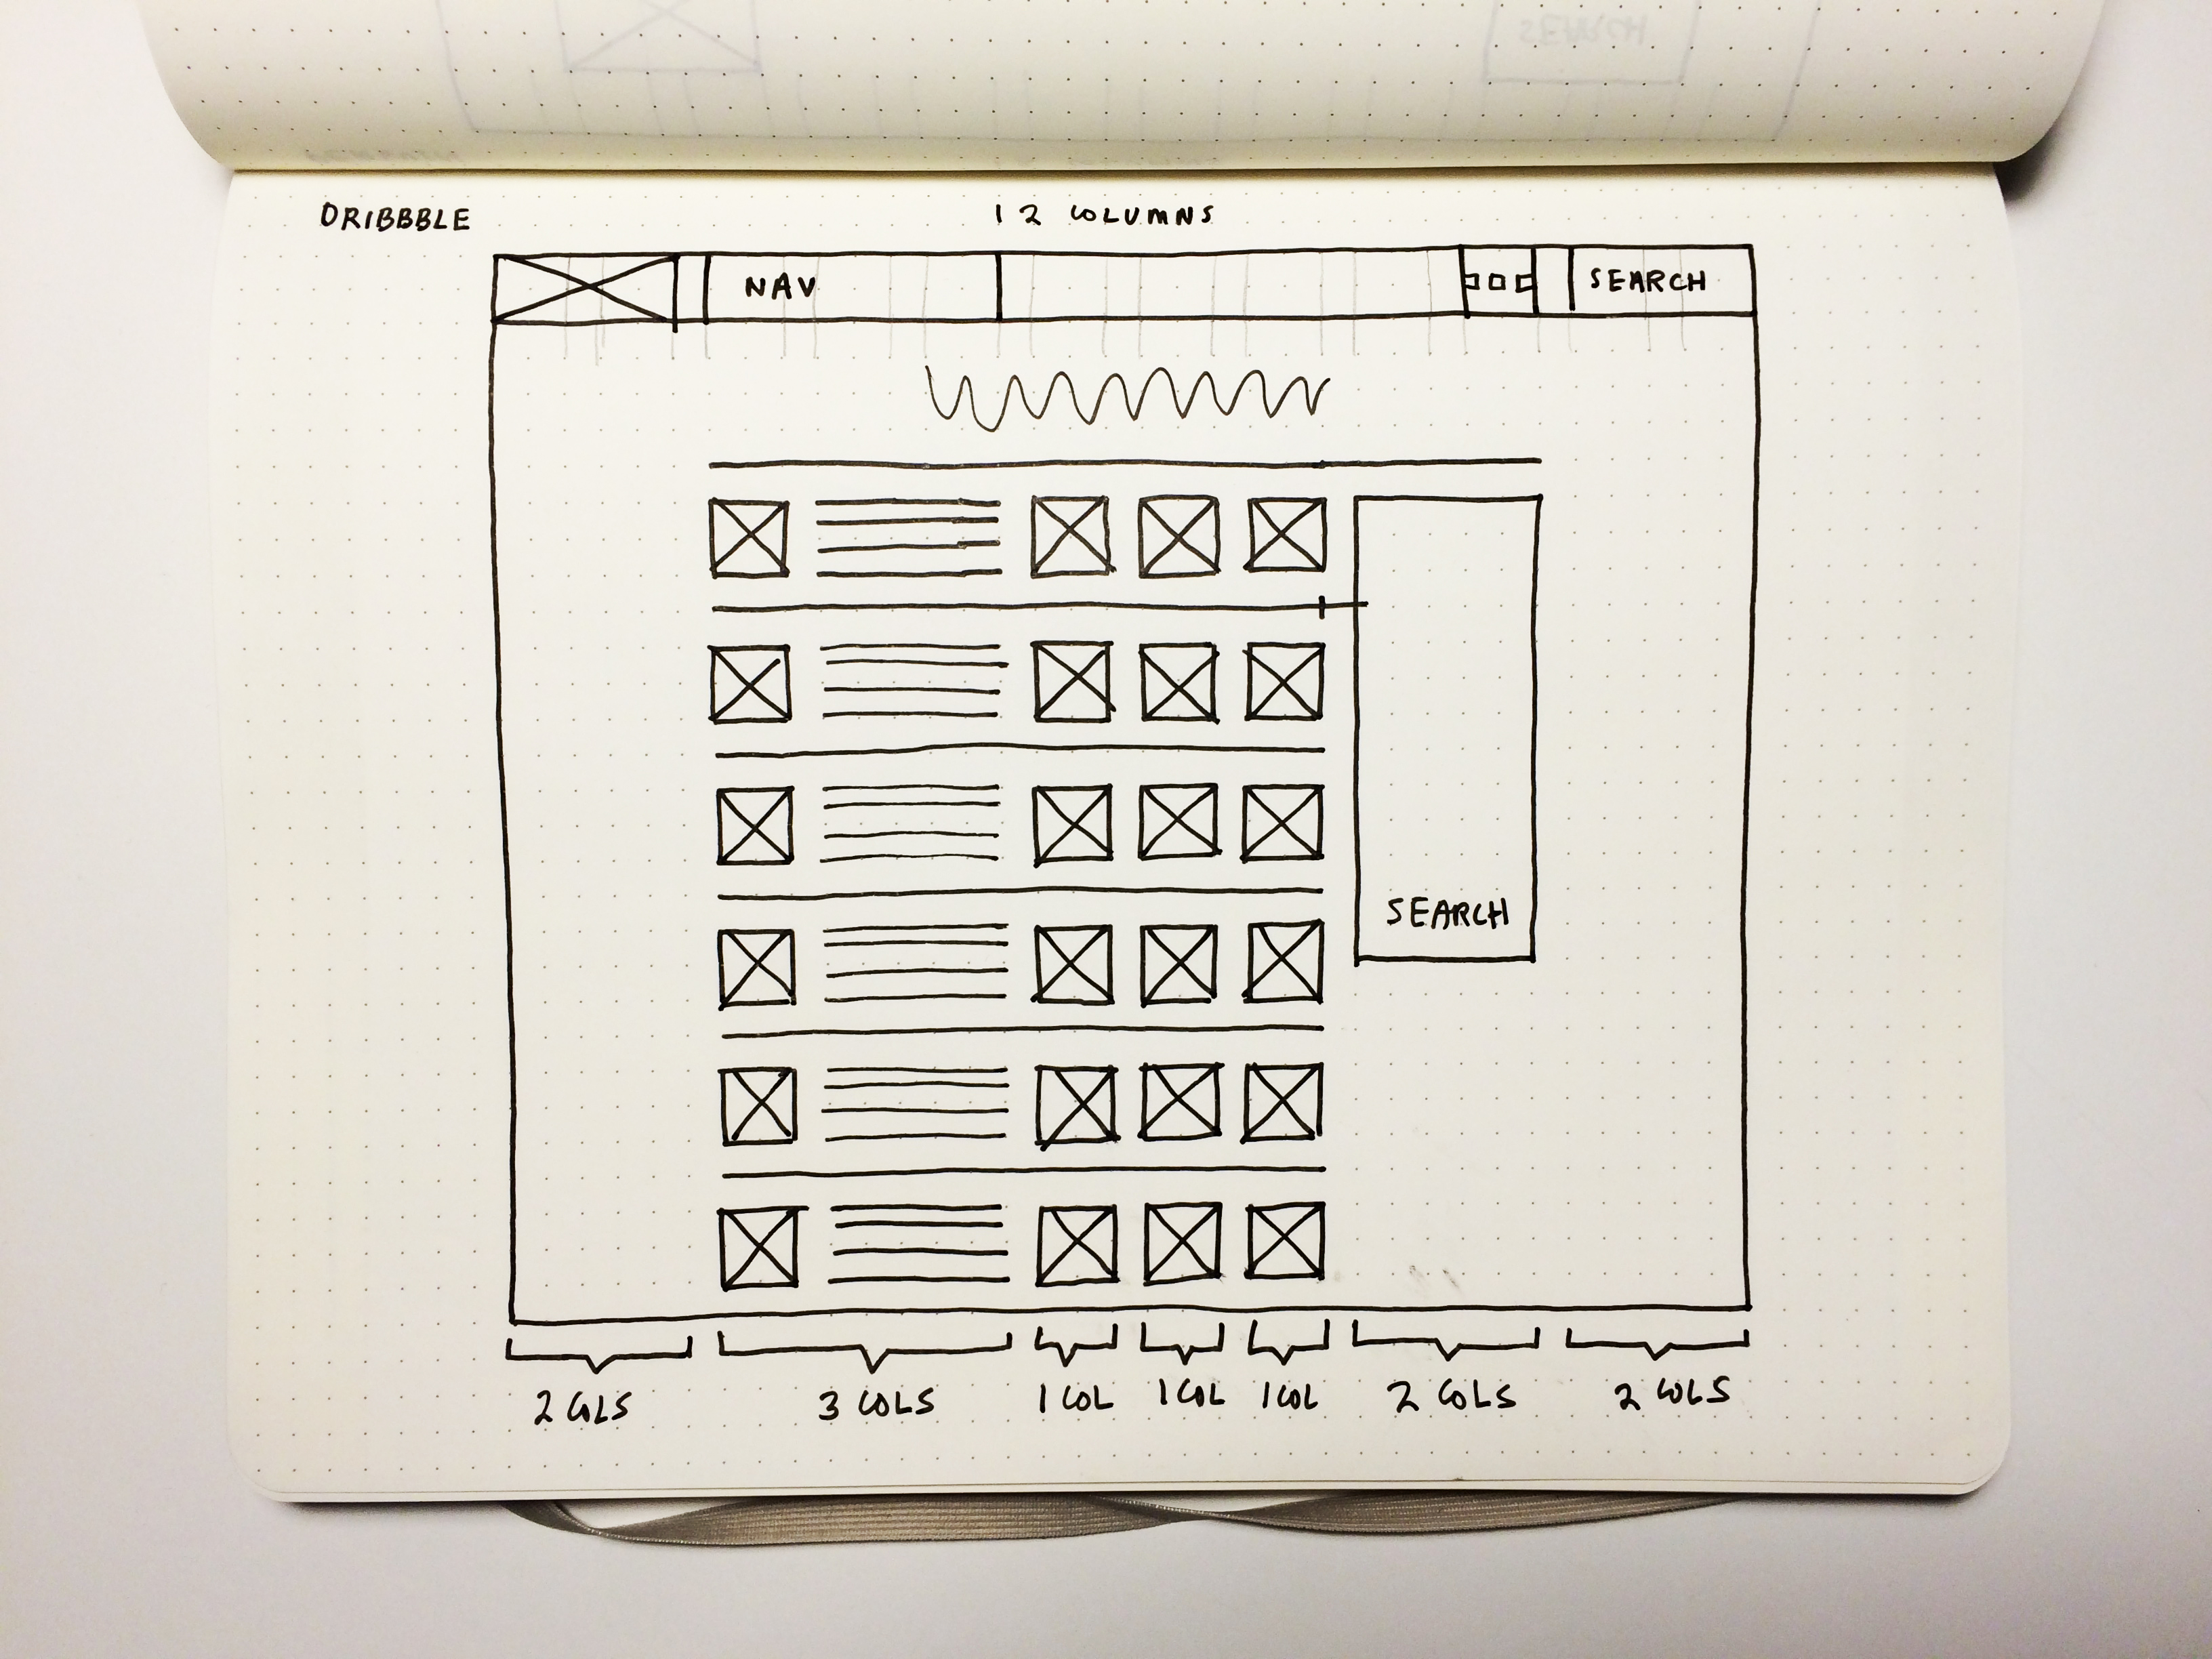 DRIBBBLE
12 COLUMNS
NAV
SEARCH
SEARCH
2 COLS
3 COLS
1 COL
1 COL
1 COL
2 COLS
2 COLS